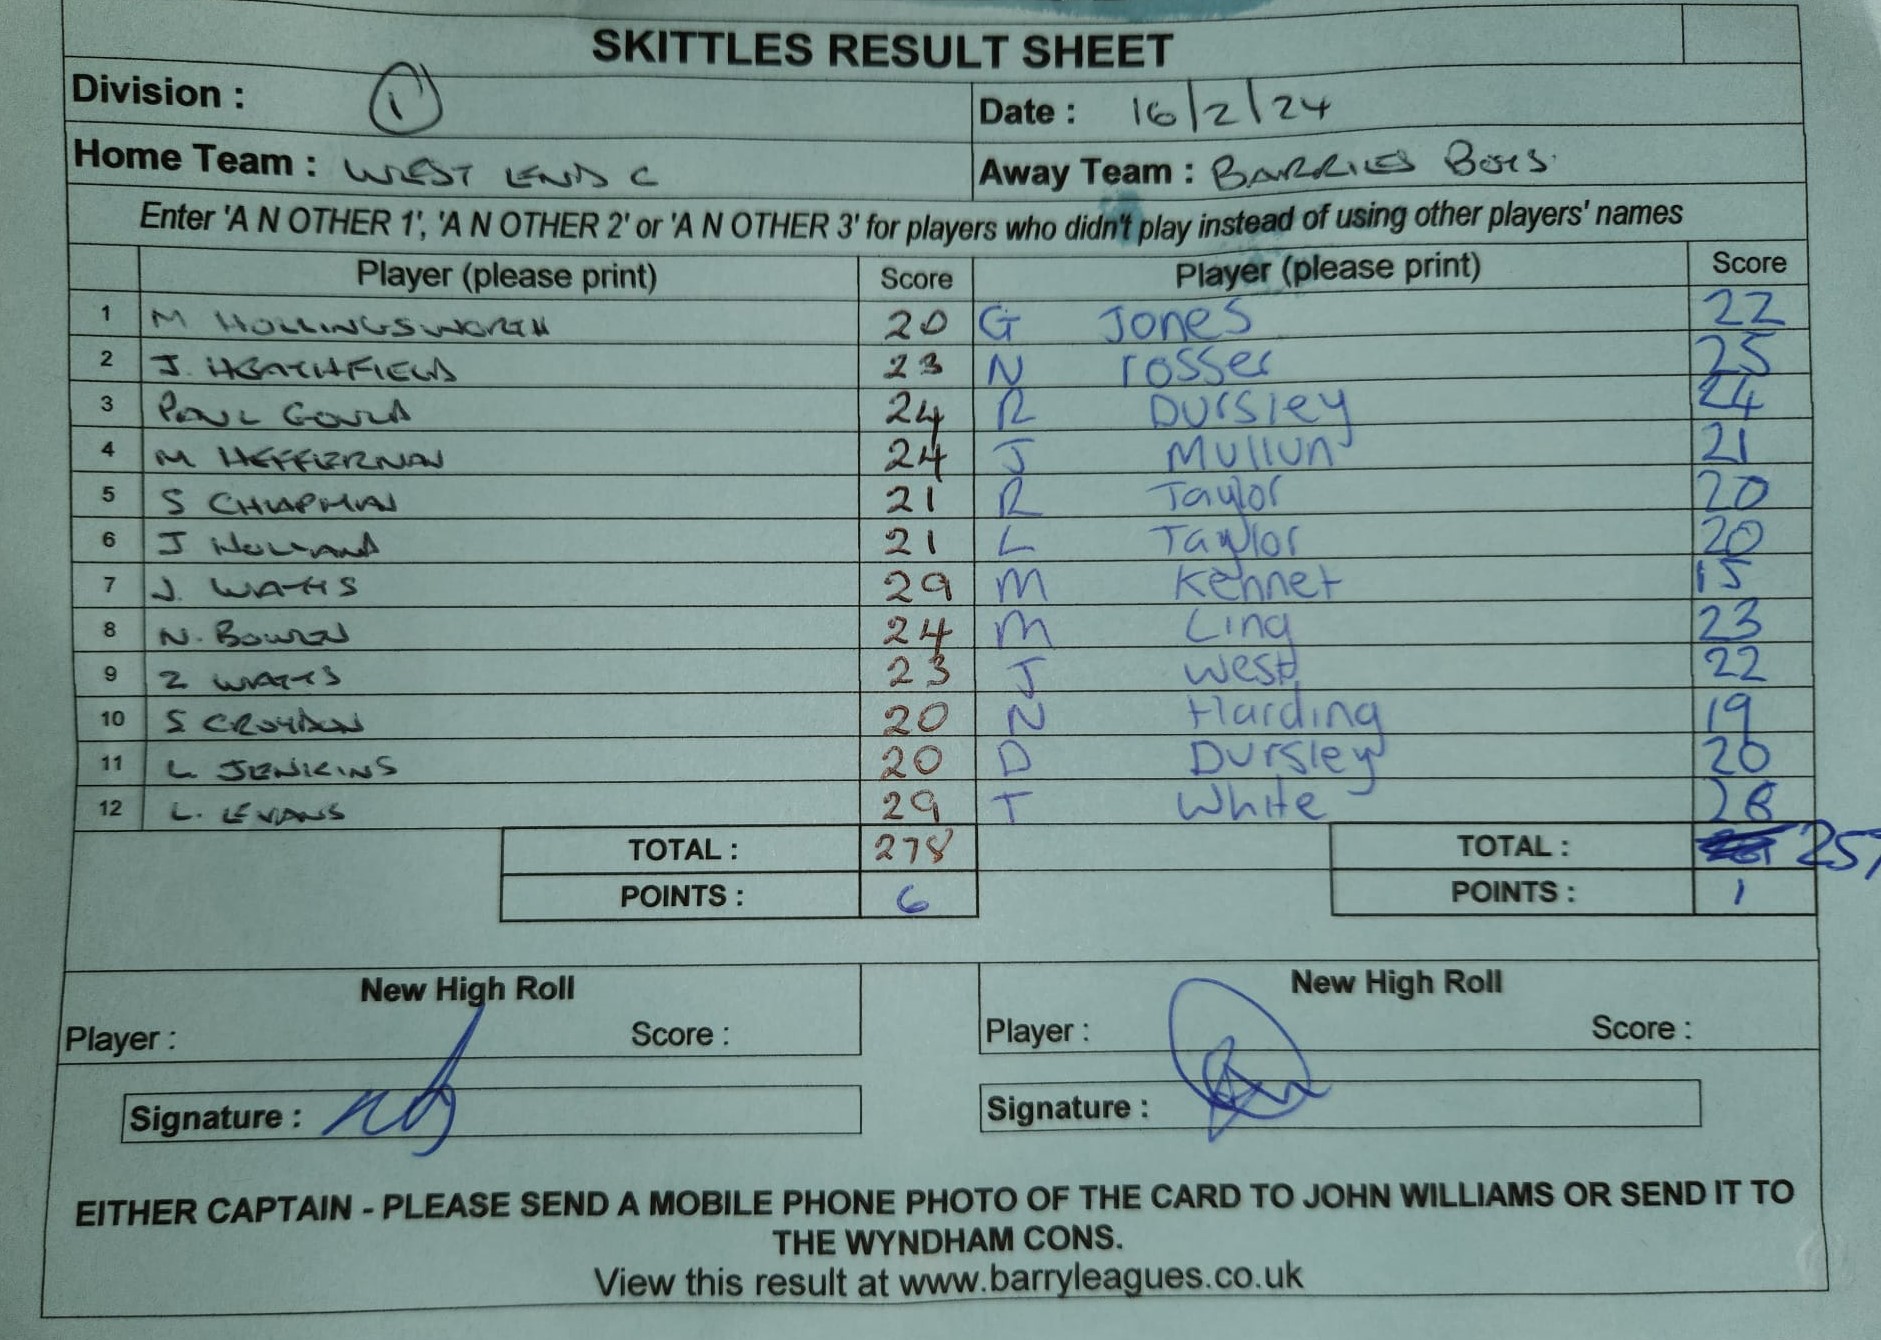 SKITTLES RESULT SHEET
Division : 1 Date : 16/2/24
Home Team : WEST END C Away Team : BARRIES BOYS
Enter 'A N OTHER 1', 'A N OTHER 2' or 'A N OTHER 3' for players who didn't play instead of using other players' names
Player (please print) Score Player (please print) Score
1 M HOLLINGSWORTH 20 G Jones 22
2 J. HEATHFIELD 23 N rosser 25
3 PAUL GOULD 24 R Dursley 24
4 M HEFFERNAN 24 J Mullun 21
5 S CHAPMAN 21 R Taylor 20
6 J HOLLAND 21 L Taylor 20
7 J. WATTS 29 M Kennet 15
8 N. BOWEN 24 M Ling 23
9 Z WATTS 23 J West 22
10 S CROYDON 20 N Harding 19
11 L JENKINS 20 D Dursley 20
12 L. EVANS 29 T White 28
TOTAL : 278 TOTAL : 257
POINTS : 6 POINTS : 1
New High Roll New High Roll
Player : Score : Player : Score :
Signature : Signature :
EITHER CAPTAIN - PLEASE SEND A MOBILE PHONE PHOTO OF THE CARD TO JOHN WILLIAMS OR SEND IT TO
THE WYNDHAM CONS.
View this result at www.barryleagues.co.uk